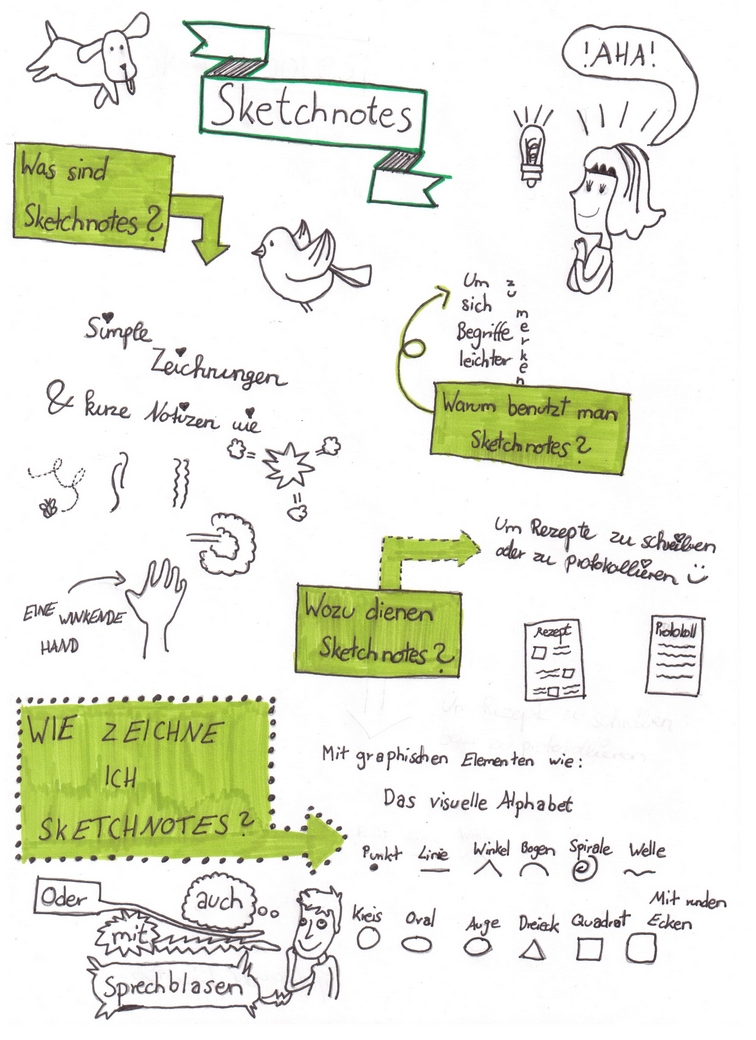 Sketchnotes
!AHA!
Was sind
Sketchnotes?
Simple
Zeichnungen
& kurze Notizen wie
EINE WINKENDE
HAND
Um
sich
Begriffe
leichter
zu
merken
Warum benutzt man
Sketchnotes?
Um Rezepte zu schreiben
oder zu protokollieren
Wozu dienen
Sketchnotes?
Rezept
Protokoll
WIE ZEICHNE
ICH
SKETCHNOTES?
Mit graphischen Elementen wie:
Das visuelle Alphabet
Punkt Linie Winkel Bogen Spirale Welle
Kreis Oval Auge Dreieck Quadrat Mit runden
Ecken
Oder
auch
mit
Sprechblasen